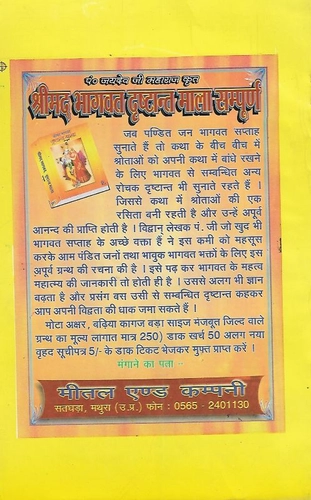 पं० जयदेव जी महाराज कृत
श्रीमद भागवत दृष्टान्त माला सम्पूर्ण
जब पण्डित जन भागवत सप्ताह
सुनाते हैं तो कथा के बीच बीच में
श्रोताओं को अपनी कथा में बांधे रखने
के लिए भागवत से सम्बन्धित अन्य
रोचक दृष्टान्त भी सुनाते रहते हैं ।
जिससे कथा में श्रोताओं की एक
रसिता बनी रहती है और उन्हें अपूर्व
आनन्द की प्राप्ति होती है । विद्वान् लेखक पं. जी जो खुद भी
भागवत सप्ताह के अच्छे वक्ता हैं ने इस कमी को महसूस
करके आम पंडित जनों तथा भावुक भागवत भक्तों के लिए इस
अपूर्व ग्रंथ की रचना की है । इसे पढ़ कर भागवत के महत्व
महात्म्य की जानकारी तो होती ही है । उससे अलग भी ज्ञान
बढ़ता है और प्रसंग बस उसी से सम्बन्धित दृष्टान्त कहकर
आप अपनी विद्वता की धाक जमा सकते हैं ।
मोटा अक्षर, बढ़िया कागज बड़ा साइज मंजबूत जिल्द वाले
ग्रन्थ का मूल्य लागात मात्र 250) डाक खर्च 50 अलग नया
वृहद सूचीपत्र 5/- के डाक टिकट भेजकर मुफ्त प्राप्त करें ।
मंगाने का पता --
मीतल एण्ड कम्पनी
सतघड़ा, मथुरा (उ.प्र.) फोन : 0565 - 2401130